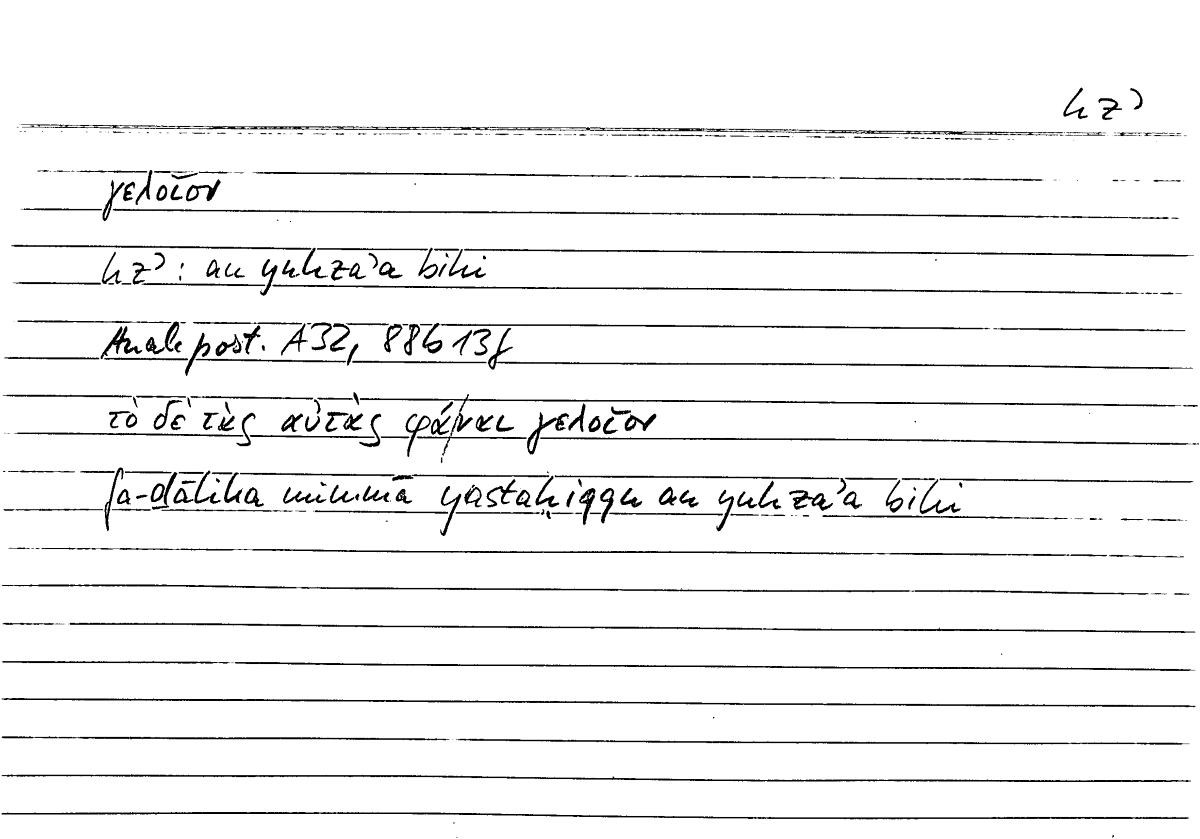 hzʾ
γελοῖον
hzʾ: an yuhzaʾa bihi
Anal. post. A32, 88b13f
τὸ δὲ τὰς αὐτὰς φάναι γελοῖον
fa-ḏālika mimmā yastaḥiqqu an yuhzaʾa bihi